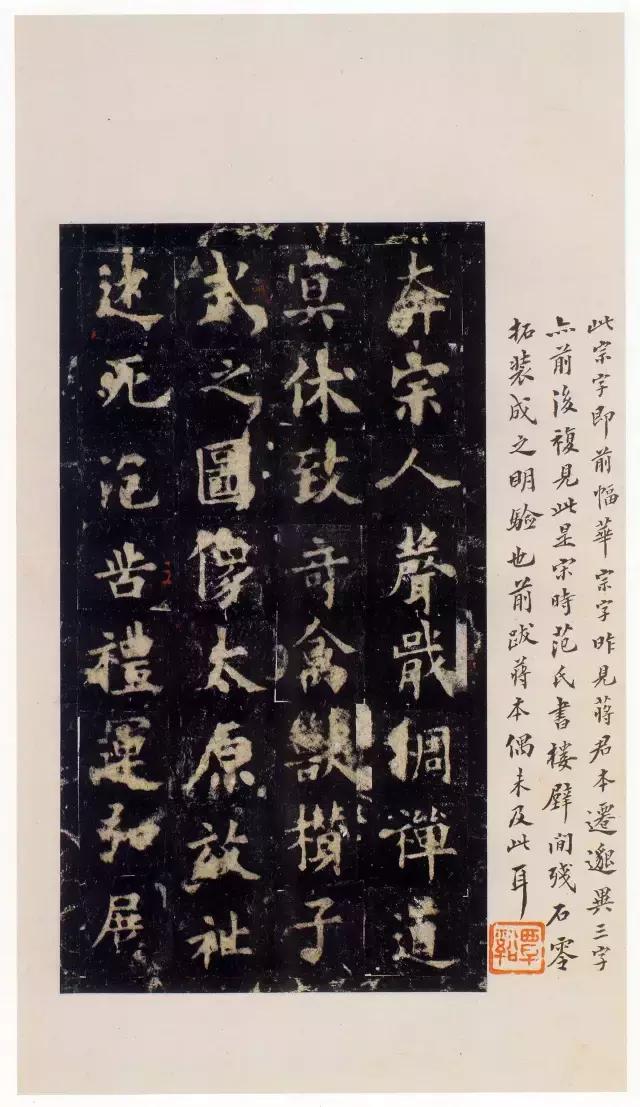 此宗字即前幅華宗字昨見蔣君本遷邈異三字
亦前後複見此是宋時范氏書樓壁間殘石零
拓裝成之明驗也前跋蔣本偶未及此耳
覃谿
奔宗人聲戢綢禪道
寘休致奇禽獸樹子
武之圖像太原放祉
述死治昔禮運弘展